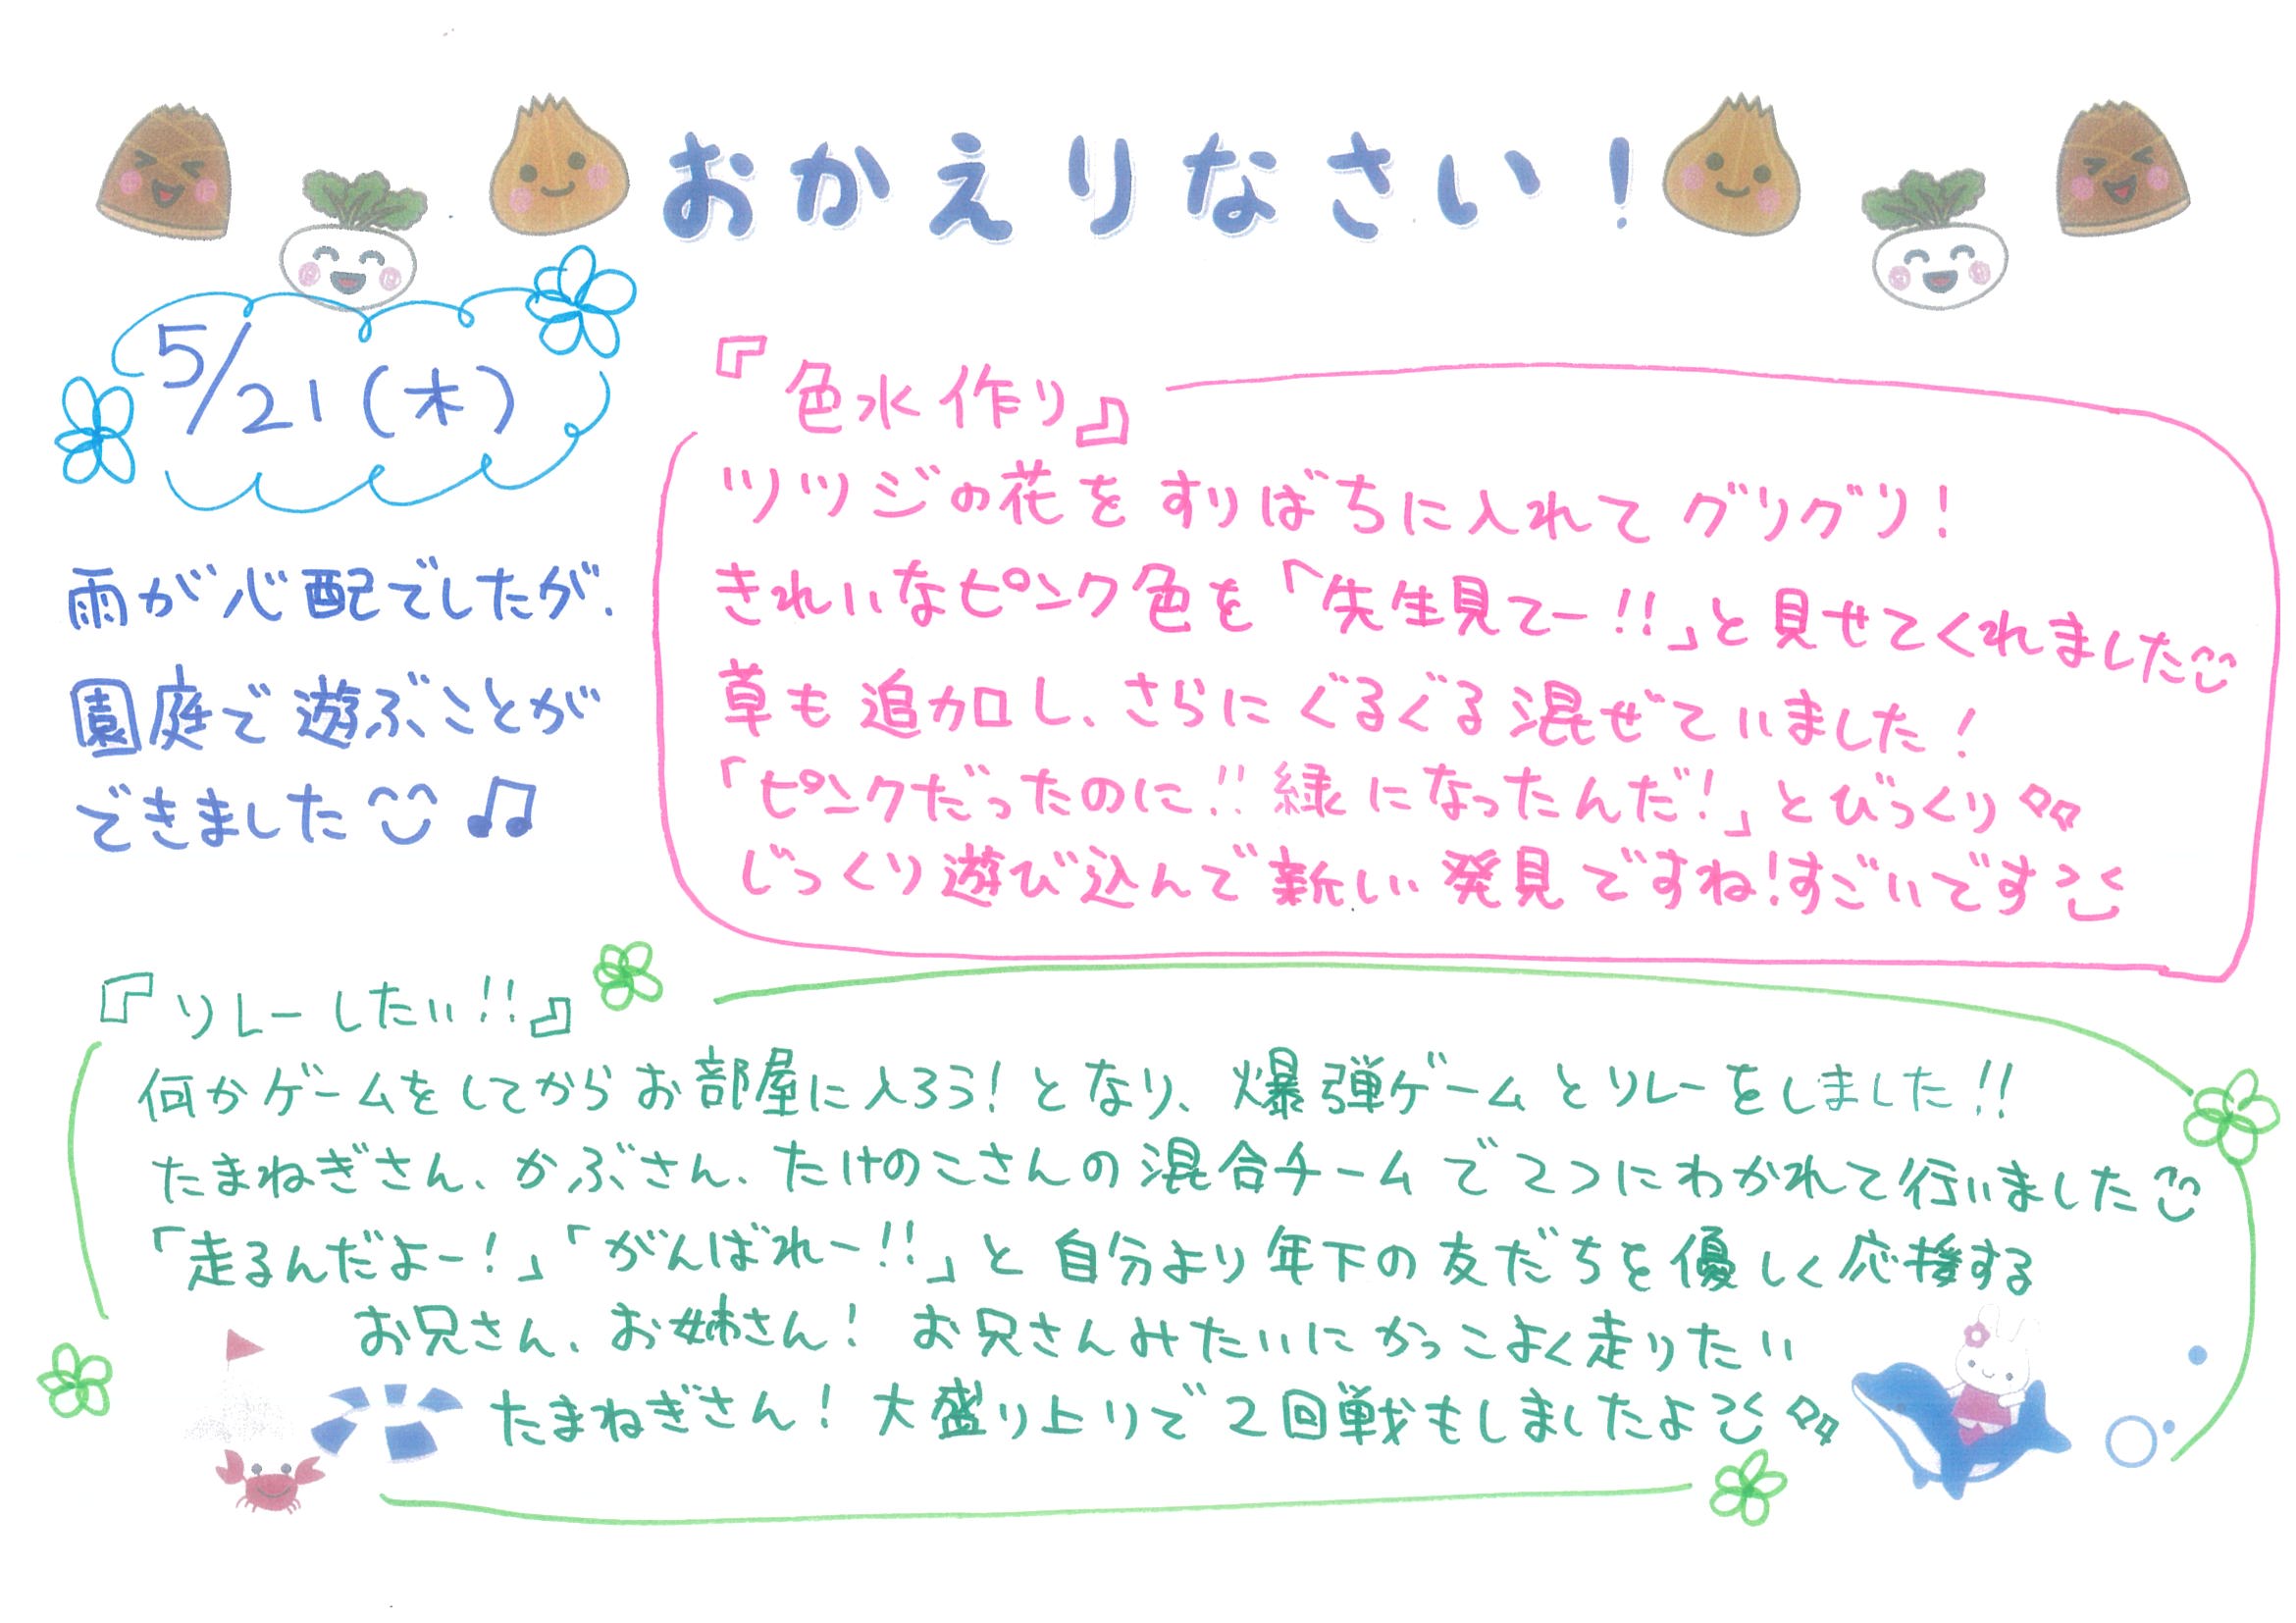 おかえりなさい！
5/21（木）
雨が心配でしたが、
園庭で遊ぶことが
できました♫
『色水作り』
ツツジの花をすりばちに入れてグリグリ！
きれいなピンク色を「先生見てー!!」と見せてくれました
草も追加し、さらにぐるぐる混ぜていました！
「ピンクだったのに!!緑になったんだ！」とびっくり
じっくり遊び込んで新しい発見ですね！すごいです
『リレーしたい!!』
何かゲームをしてからお部屋に入ろう！となり、爆弾ゲームとリレーをしました!!
たまねぎさん、かぶさん、たけのこさんの混合チームで2つにわかれて行いました
「走るんだよー！」「がんばれー!!」と自分より年下の友だちを優しく応援する
お兄さん、お姉さん！お兄さんみたいにかっこよく走りたい
たまねぎさん！大盛り上りで2回戦もしましたよ